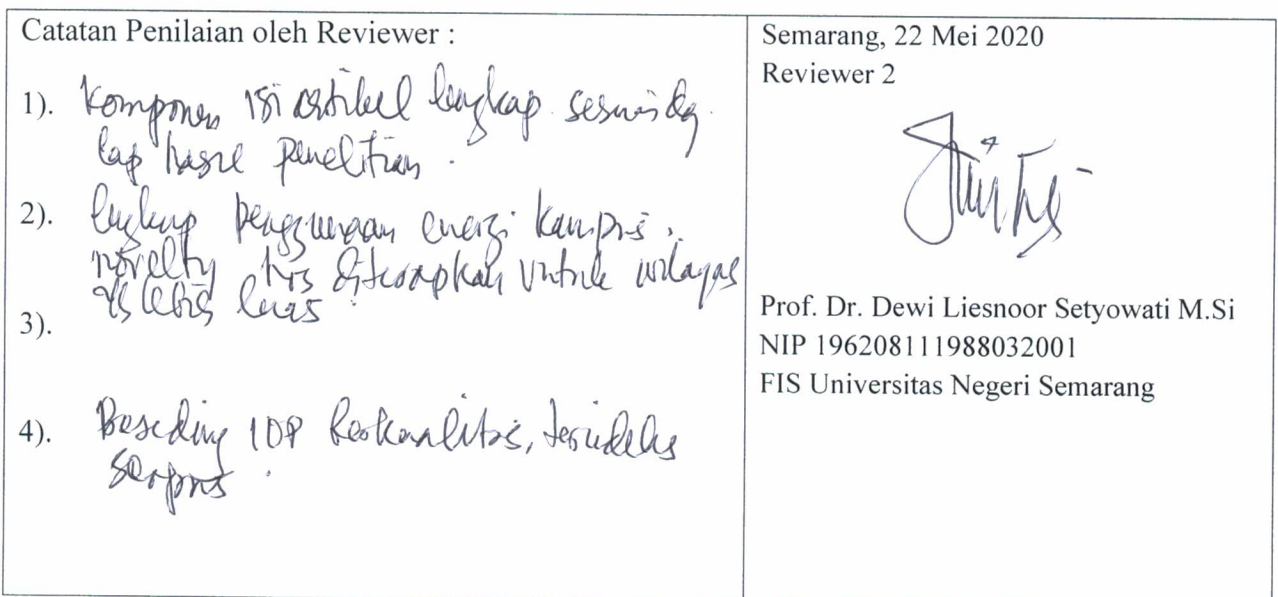 Catatan Penilaian oleh Reviewer :
1). Komponen isi artikel lengkap sesuai dg
lap hasil penelitian .
2). lingkup penggunaan energi kampus .
novelty bs diterapkan untuk wilayah
yg lebih luas .
3).
4). Proseding IOP berkualitas, terindeks
scopus .
Semarang, 22 Mei 2020
Reviewer 2
Prof. Dr. Dewi Liesnoor Setyowati M.Si
NIP 196208111988032001
FIS Universitas Negeri Semarang